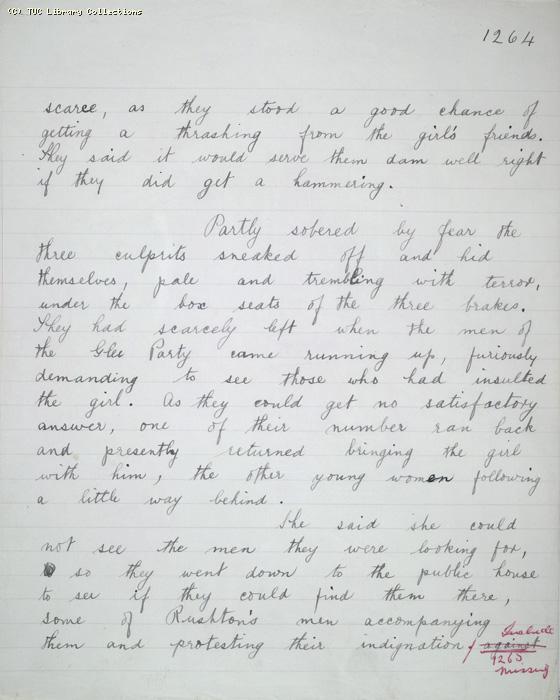 (C) TUC Library Collections
1264
scarce, as they stood a good chance of
getting a thrashing from the girl's friends.
They said it would serve them dam well right
if they did get a hammering.
Partly sobered by fear the
three culprits sneaked off and hid
themselves, pale and trembling with terror,
under the box seats of the three brakes.
They had scarcely left when the men of
the Glee Party came running up, furiously
demanding to see those who had insulted
the girl. As they could get no satisfactory
answer, one of their number ran back
and presently returned bringing the girl
with him, the other young women following
a little way behind.
She said she could
not see the men they were looking for,
so they went down to the public house
to see if they could find them there,
some of Rushton's men accompanying
them and protesting their indignation against
1265
missing